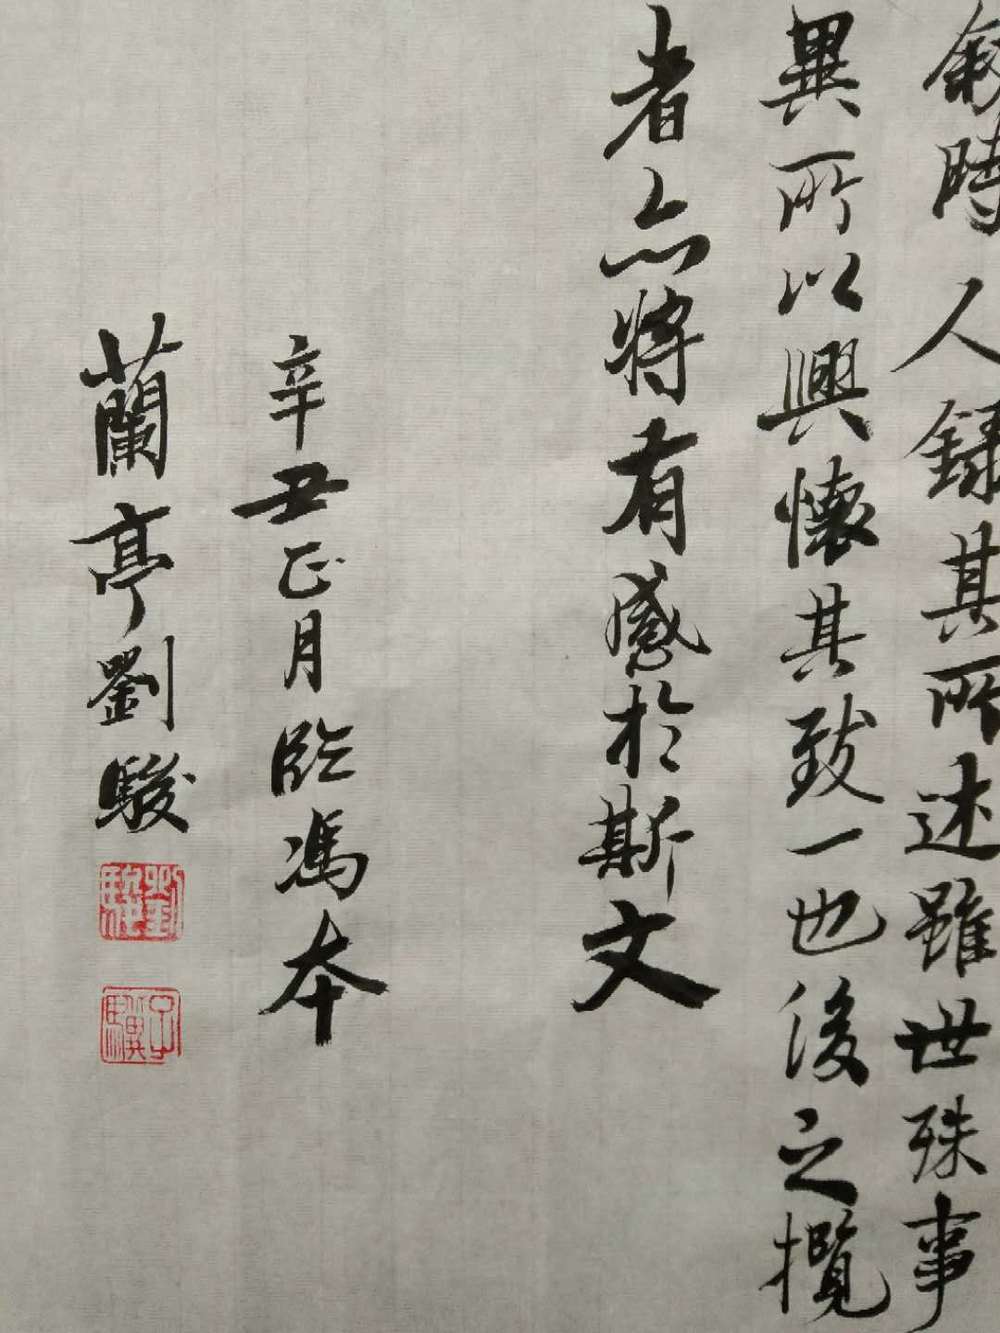 敘時人録其所述雖世殊事
異所以興懷其致一也後之攬
者亦將有感於斯文
辛丑正月臨馮本
蘭亭劉駿
劉駿
子驥